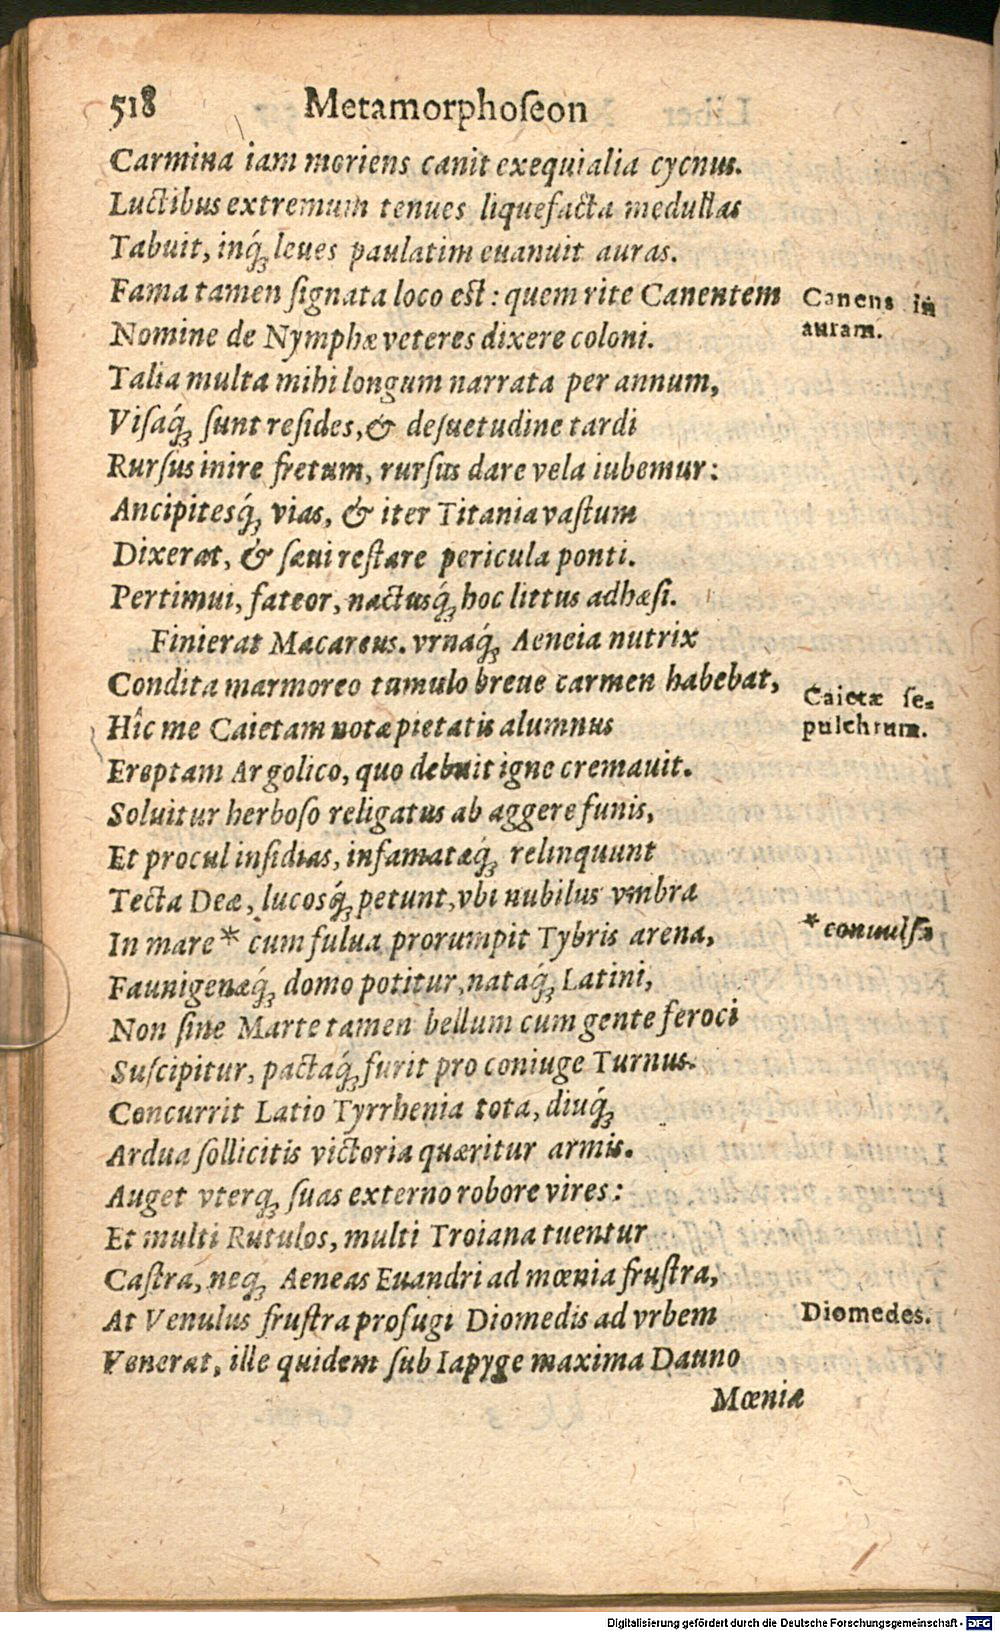 518 Metamorphoſeon
Carmina iam moriens canit exequialia cycnus.
Luctibus extremum tenues liquefacta medullas
Tabuit, inq́ꝫ leues paulatim euanuit auras.
Fama tamen ſignata loco est: quem rite Canentem
Canens in
auram.
Nomine de Nymphæ veteres dixere coloni.
Talia multa mihi longum narrata per annum,
Viſaq́ꝫ ſunt reſides, & deſuetudine tardi
Rurſus inire fretum, rurſus dare vela iubemur:
Ancipitesq́ꝫ vias, & iter Titania vaſtum
Dixerat, & ſæui reſtare pericula ponti.
Pertimui, fateor, nactusq́ꝫ hoc littus adhæſi.
Finierat Macareus. vrnaq́ꝫ Aeneia nutrix
Condita marmoreo tumulo breue carmen habebat,
Caietæ ſe=
pulchrum.
Hîc me Caietam notæ pietatis alumnus
Ereptam Argolico, quo debuit igne cremauit.
Soluitur herboſo religatus ab aggere funis,
Et procul inſidias, infamatæq́ꝫ relinquunt
Tecta Deæ, lucosq́ꝫ petunt, vbi nubilus vmbra
In mare* cum fulua prorumpit Tybris arena,
*conuulſa
Faunigenæq́ꝫ domo potitur, nataq́ꝫ Latini,
Non ſine Marte tamen bellum cum gente feroci
Suſcipitur, pactaq́ꝫ furit pro coniuge Turnus.
Concurrit Latio Tyrrhenia tota, diuq́ꝫ
Ardua ſollicitis victoria quæritur armis.
Auget vterqꝫ ſuas externo robore vires:
Et multi Rutulos, multi Troiana tuentur
Caſtra, neqꝫ Aeneas Euandri ad mœnia fruſtra,
At Venulus fruſtra profugi Diomedis ad vrbem
Diomedes.
Venerat, ille quidem ſub Iapyge maxima Dauno
Mœnia
Digitalisierung gefördert durch die Deutsche Forschungsgemeinschaft - DFG